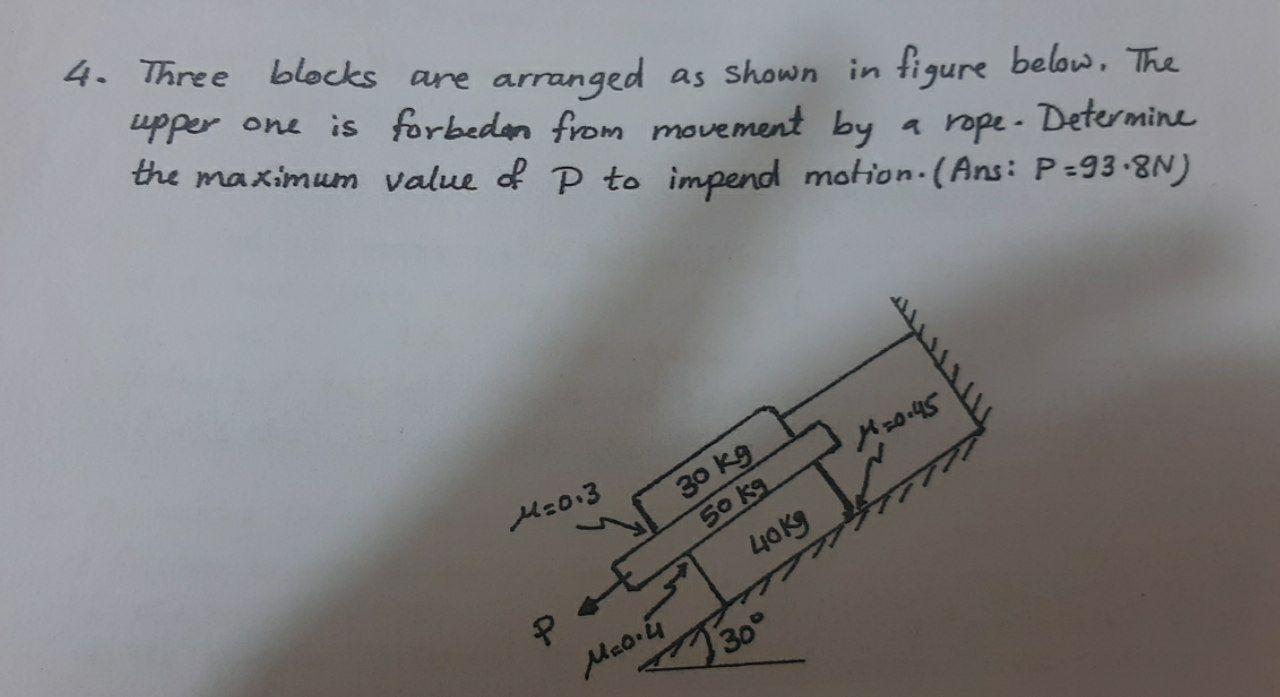 4. Three blocks are arranged as shown in figure below. The
upper one is forbeden from movement by a rope. Determine
the maximum value of P to impend motion. (Ans: P=93.8N)
μ=0.45
30 kg
μ=0.3
50 kg
40kg
P
μ=0.4
30°